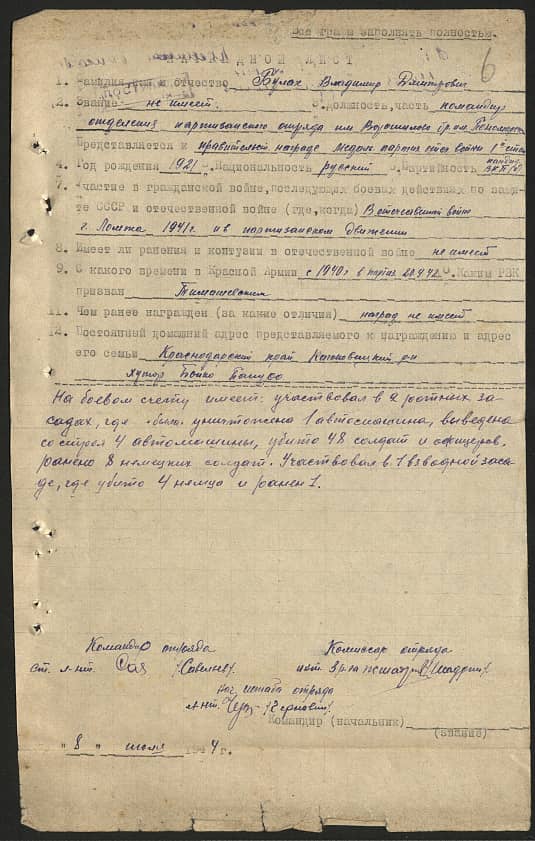 Все графы заполнять полностью.
6
НАГРАДНОЙ ЛИСТ
1. Фамилия имя и отчество Булах Владимир Дмитрович
2. Звание не имеет 3. должность, часть командир
отделения партизанского отряда им Ворошилова бр им Пономаренко
Представляется к правительств награде медаль партиз отеч войны 1ой степ
4. Год рождения 1921 5. Национальность русский 6. Партийность кандид ВКП/б/
7. Участие в гражданской войне, последующих боевых действиях по защи-
те СССР и отечественной войне (где, когда) В отечественной войне
г. Ломжа 1941г и в партизанском движении
8. Имеет ли ранения и контузии в отечественной войне не имеет
9. С какого времени в Красной Армии с 1940г в партиз 20.9.42 Каким РВК
призван Тимашевским
11. Чем ранее награжден (за какие отличия) наград не имеет
12. Постоянный домашний адрес представляемого к награждению и адрес
его семьи Краснодарский край р-н
хутор Бойко
На боевом счету имеет: участвовал в 2 ротных за-
садах, где была уничтожена 1 автомашина, выведена
со строя 4 автомашины, убито 48 солдат и офицеров,
ранено 8 немецких солдат. Участвовал в 1 взводной заса-
де, где убито 4 немца и ранен 1.
Командир отряда Комиссар отряда
ст. л-нт. /Савельев/
нач штаба отряда
л-нт.
Командир (начальник)
(звание)
"8" июля 1944г.